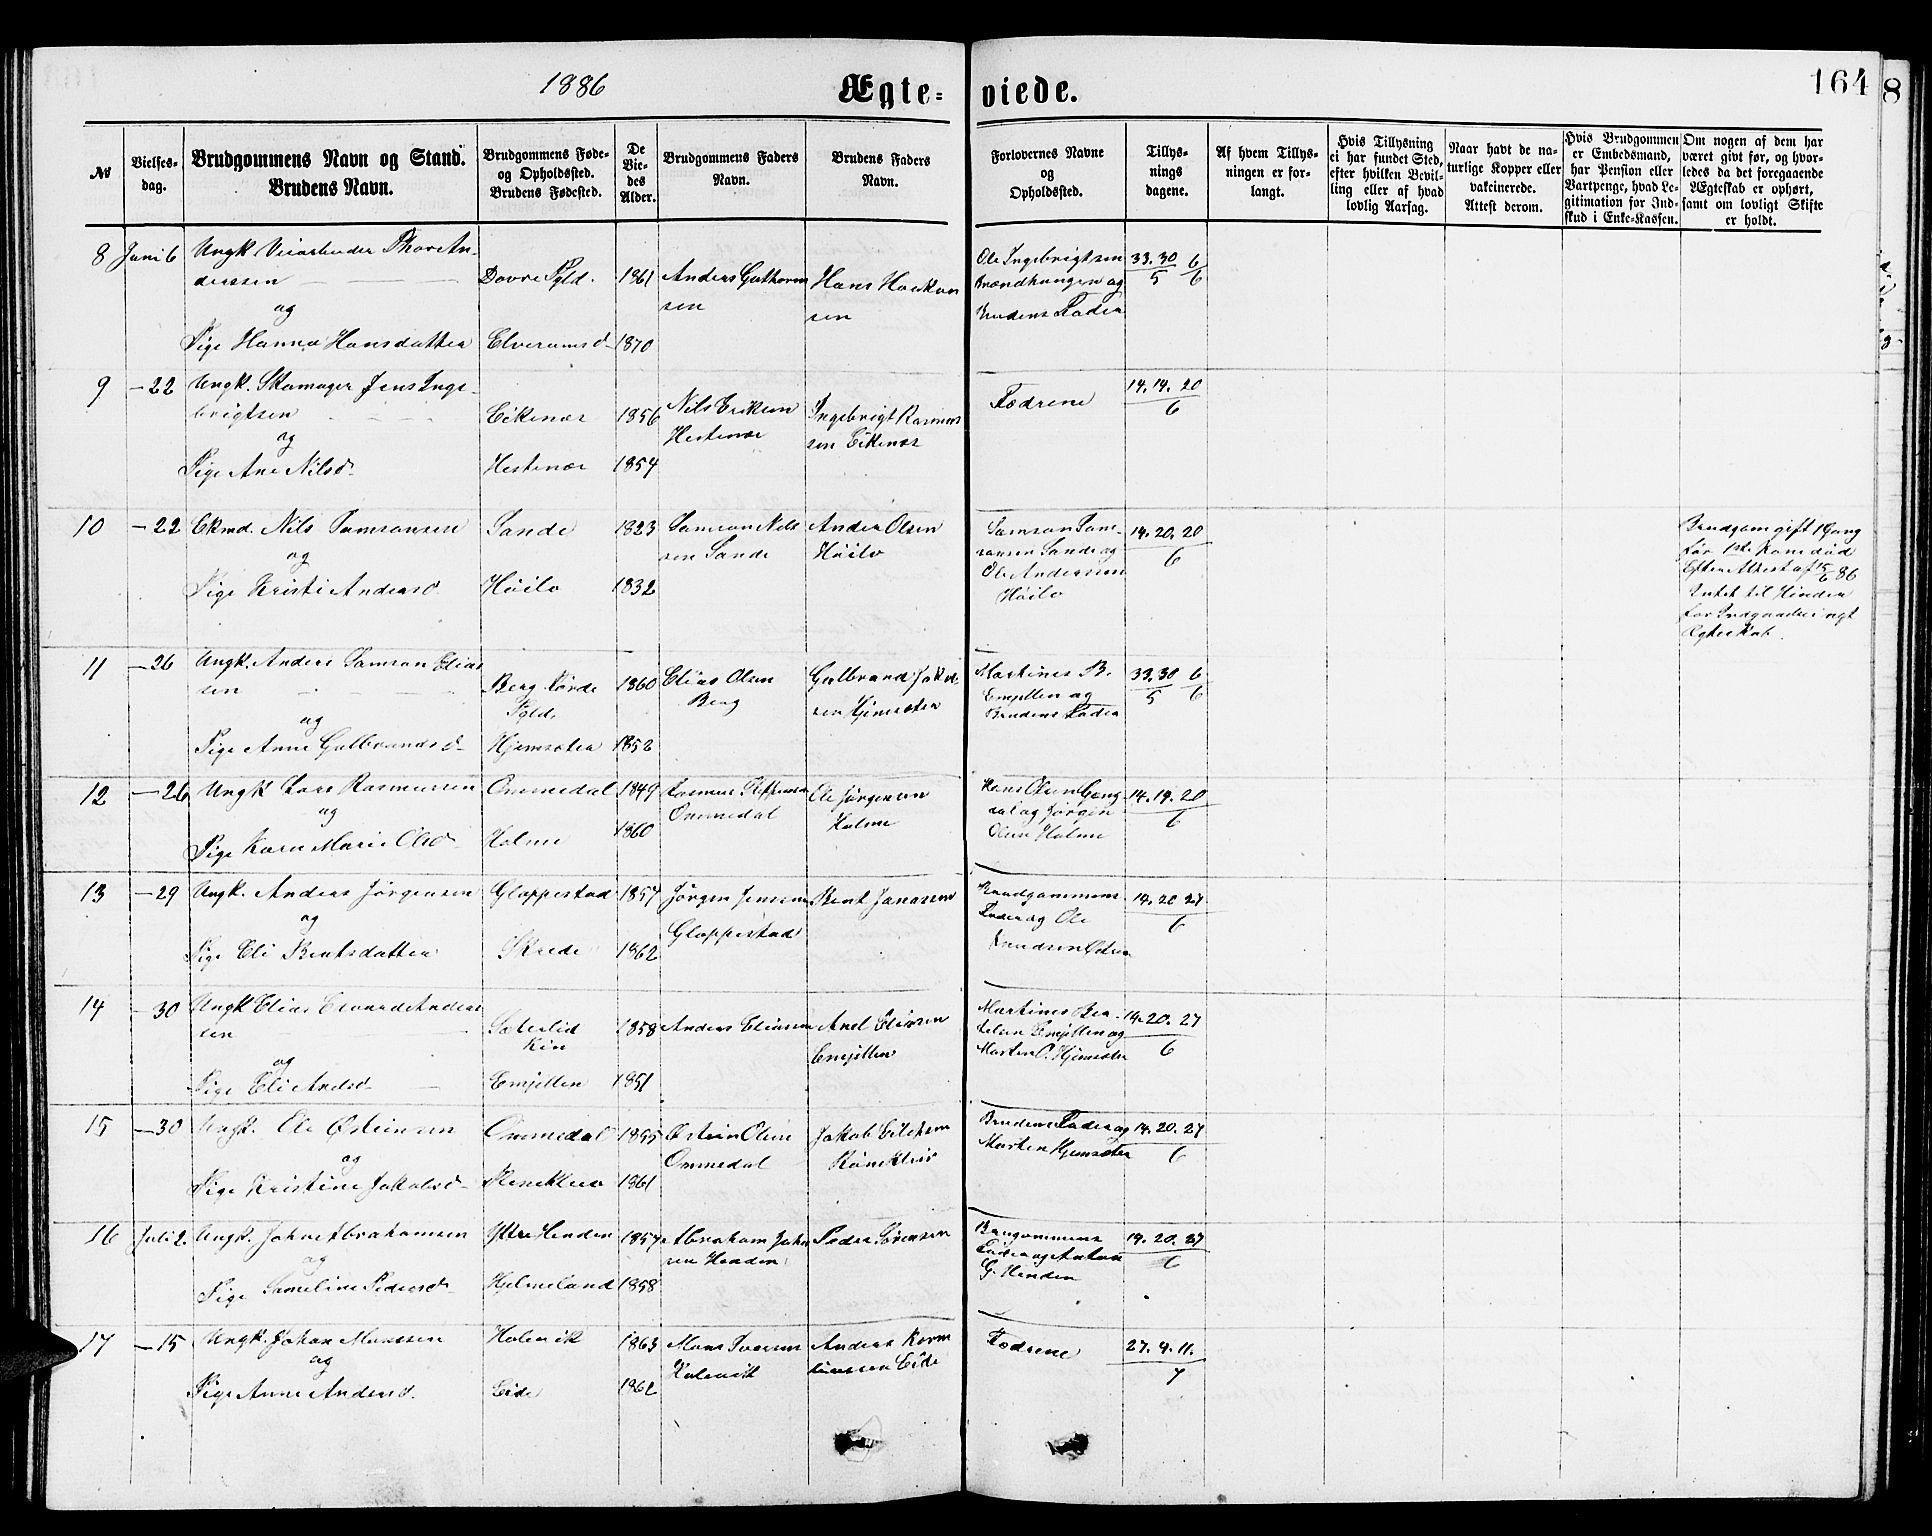 1886
Ægte-
viede.
164
8
No
Vielses-
dag.
Brudgommens Navn og Stand.
Brudens Navn.
Brudgommens Føde-
og Opholdssted.
Brudens Fødested.
De
Vie-
des
Alder.
Brudgommens Faders
Navn.
Brudens Faders
Navn.
Forlovernes Navne
og
Opholdssted.
Tillys-
nings
dagene.
Af hvem Tillys-
ningen er for-
langt.
Hvis Tillysning
ei har fundet Sted,
efter hvilken Bevil-
ling eller af hvad
lovlig Aarsag.
Naar havt de na-
turlige Kopper eller
vakcinerede.
Attest derom.
Hvis Brudgommen
er Embedsmand,
har Pension eller
Vartpenge, hvad Le-
gitimation for Ind-
skud i Enke-Kassen.
Om nogen af dem har
været givt før, og hvor-
ledes da det foregaaende
Ægteskab er ophørt,
samt om lovligt Skifte
er holdt.
8 Juni 6 Ungk. Veiarbeider Thore An-
derssen
og
Pige Hanna Hansdatter
Dovre Pgld. 1861
Elverumsd 1870
Anders Guthorm
sen
Hans Haakon
sen
Ole Ingebrigtsen
Brændhaugen og
Brudens Fader
33. 30 6
5 6
9 - 22 Ungk. Skomager Jens Inge-
brigtsen
og
Pige Ane Nilsd.
Eikenær 1856
Hestenær 1854
Nils Eriksen
Hestenær
Ingebrigt Rasmus
sen Eikenær
Fædrene
14. 14. 20
6
10 - 22 Ekmd. Nils Samsonsen
og
Pige Kristi Andersd
Sande 1823
Høilo 1832
Samson Nils
sen Sande
Anders Olsen
Høilo
Samson Sam-
sonsen Sande og
Ole Anderssen
Høilo
14. 20. 20
6
Brudgom gift 1 Gang
før 1ste Kone død
Efter Attest af 15/6 86
Intet til Hinder
for Indgaaelse i nyt
Ægteskab.
11 - 26 Ungk. Anders Samson Elias
sen
og
Pige Anne Gulbrandsd.
Berg Førde 1860
Pgld.
Hjemsæter 1852
Elias Olsen
Berg
Gulbrand Jakob
sen Hjemsæter
Martines B.
Emjellen og
Brudens Fader
33. 30 6
5 6
12 - 26 Ungk Lars Rasmussen
og
Pige Karn Marie Olsd.
Ommedal 1849
Holme 1860
Ommedal
Ole Jørgensen
Holme
Hans Olsen Gang
dal og Jørgen
Olsen Holme
14. 14. 20
6
13 - 29 Ungk. Anders Jørgensen
og
Pige Eli Bentsdatter
Gloppestad 1857
Skrede 1862
Jørgen Jensen
Gloppestad
Bent Janassen
Brudgommens
Fader og Ole
Knudsen
14. 20 27
6
14 - 30 Ungk Elias Edvard Anders
sen
og
Pige Eli Andsd
Sæterlid 1858
Kin
Emjellen 1851
Anders Eliassen
Emjellen
Martines Ber-
telsen Emjellen og
Morten O. Hjemsæter
14. 20. 27
6
15 - 30 Ungk. Ole Østensen
og
Pige Kristine Jakobsd
Ommedal 1855
1861
Østen Olsen
Ommedal
Jakob
Brudens Fader og
Morten Hjemsæter
14. 20. 27
6
16 Juli 2. Ungk. Johan Abrahamsen
og
Pige Sameline Pedersd
Ytre Henden 1857
Hjelmeland 1858
Abraham Johan
sen Henden
Peder Sørensen
Brugommens
Fader og Anton
G. Henden
14. 20. 27
6
17 - 15 Ungk. Johan Monssen
og
Pige Anne Andersd.
Holevik 1863
Eide 1862
Mons Iversen
Holevik
Anders
Eide
Fædrene
27. 4. 11.
7